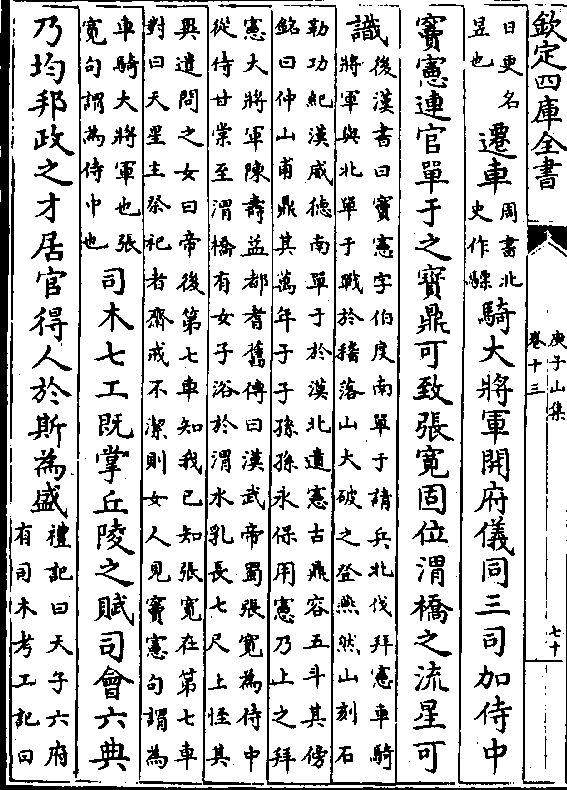 欽定四庫全書
庾子山集
卷十三
七十
日更名
昱也
遷車
周書北
史作驃
騎大將軍開府儀同三司加侍中
竇憲連官單于之寶鼎可致張寛固位渭橋之流星可
識
後漢書曰竇憲字伯度南單于請兵北伐拜憲車騎
將軍與北單于戰於稽落山大破之登燕然山刻石
勒功紀漢威德南單于於漠北遺憲古鼎容五斗其傍
銘曰仲山甫鼎其萬年子子孫孫永保用憲乃上之拜
憲大將軍陳壽益都耆舊傳曰漢武帝蜀張寛為侍中
從侍甘棠至渭橋有女子浴於渭水乳長七尺上怪其
異遣問之女曰帝後第七車知我已知張寛在第七車
對曰天星主祭祀者齋戒不潔則女人見竇憲句謂為
車騎大將軍也張
寛句謂為侍中也
司木七工既掌丘陵之賦司會六典
乃均邦政之才居官得人於斯為盛
禮記曰天子六府
有司木考工記曰